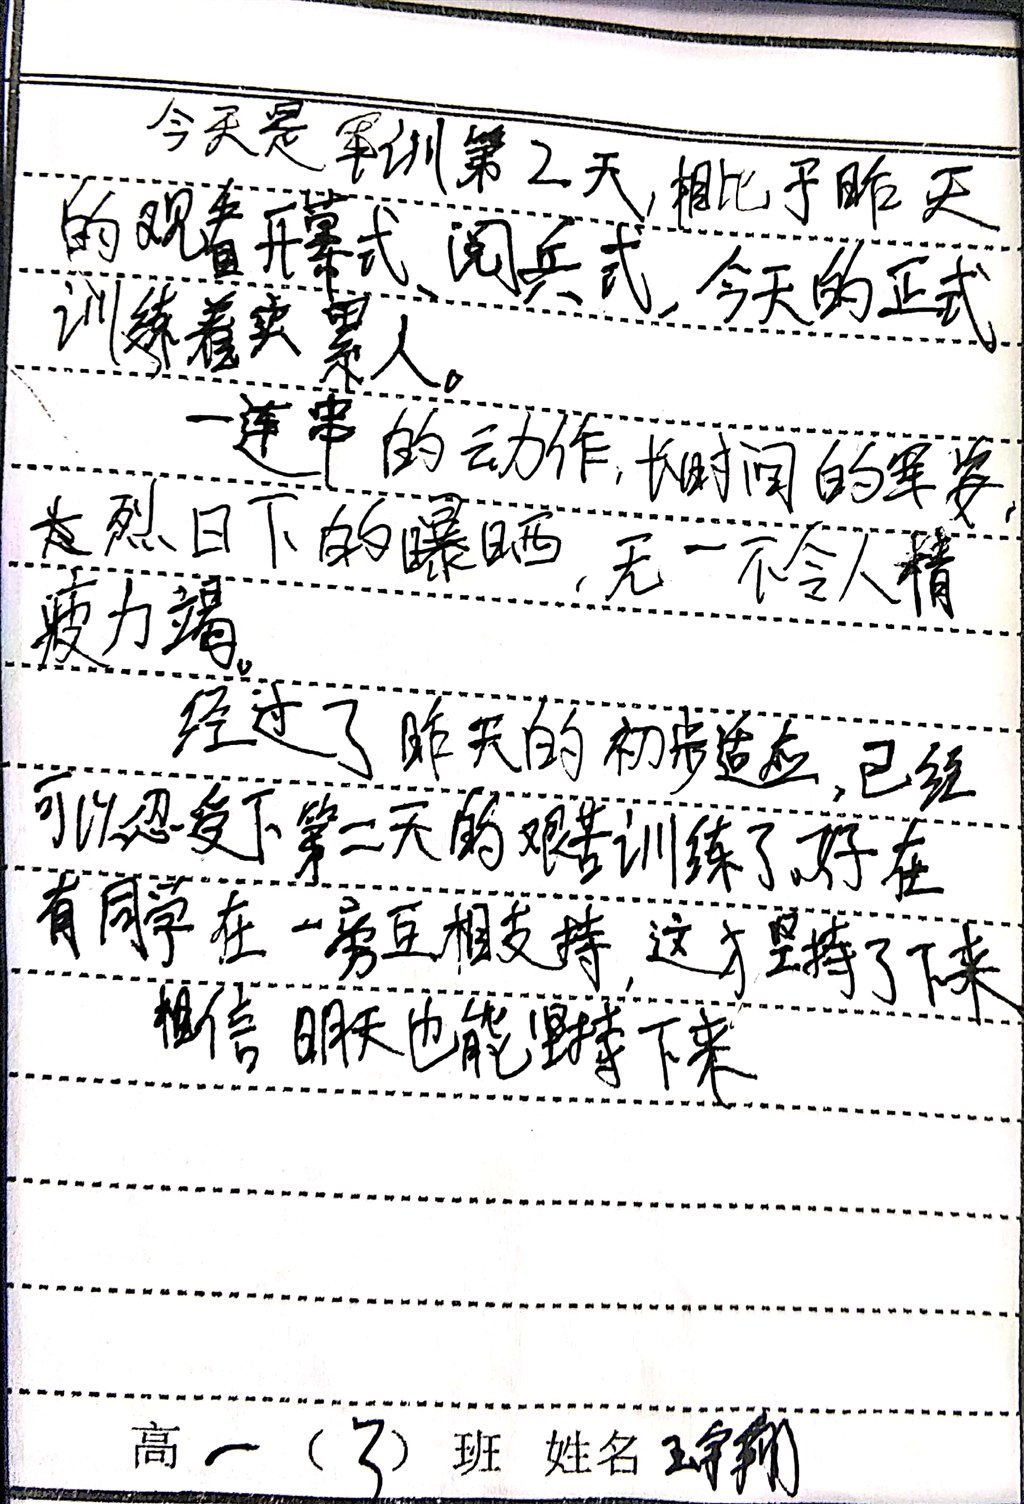 今天是军训第2天,相比于昨天
的观看开幕式、阅兵式,今天的正式
训练着实累人。
一连串的动作,长时间的军姿,
在烈日下的曝晒,无一不令人精
疲力竭。
经过了昨天的初步适应,已经
可以忍受下第二天的艰苦训练了。好在
有同学在一旁互相支持,这才坚持了下来
相信明天也能坚持下来
高一(3)班 姓名 王宇翔